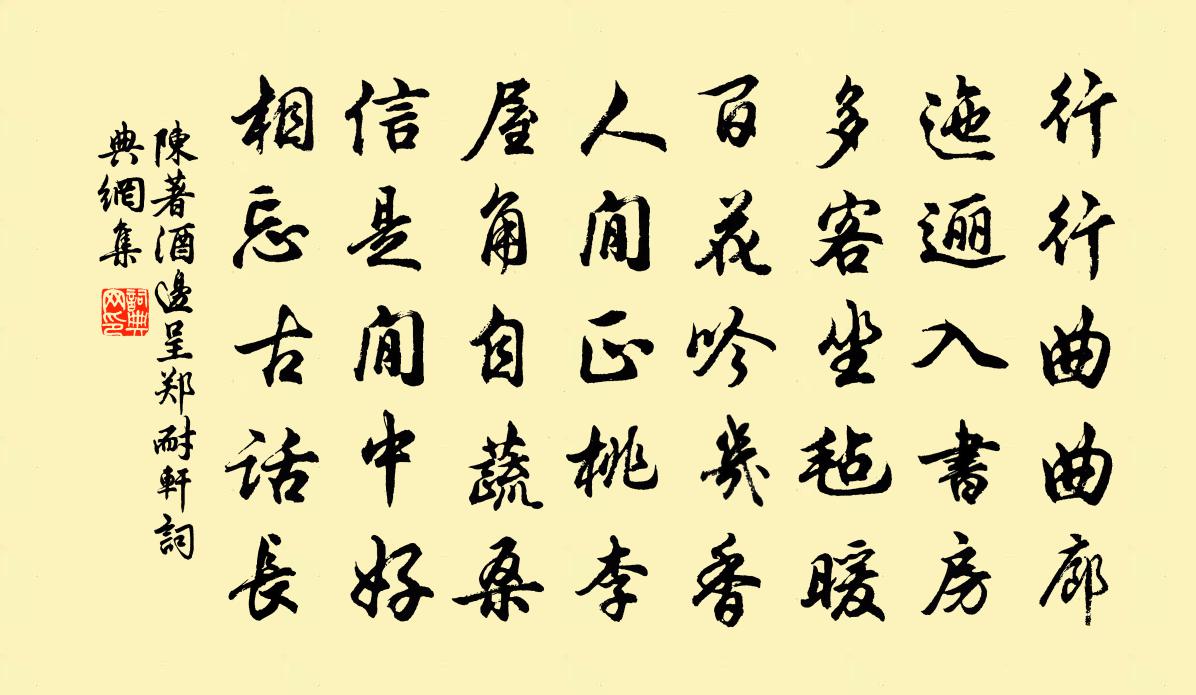 行行曲曲廊
迤逦入書房
多客坐毡暖
百花吟几香
人間正桃李
屋角自蔬桑
信是間中好
相忘古話長
陳著酒邊呈郑耐軒詞
典網集
詞典
网印